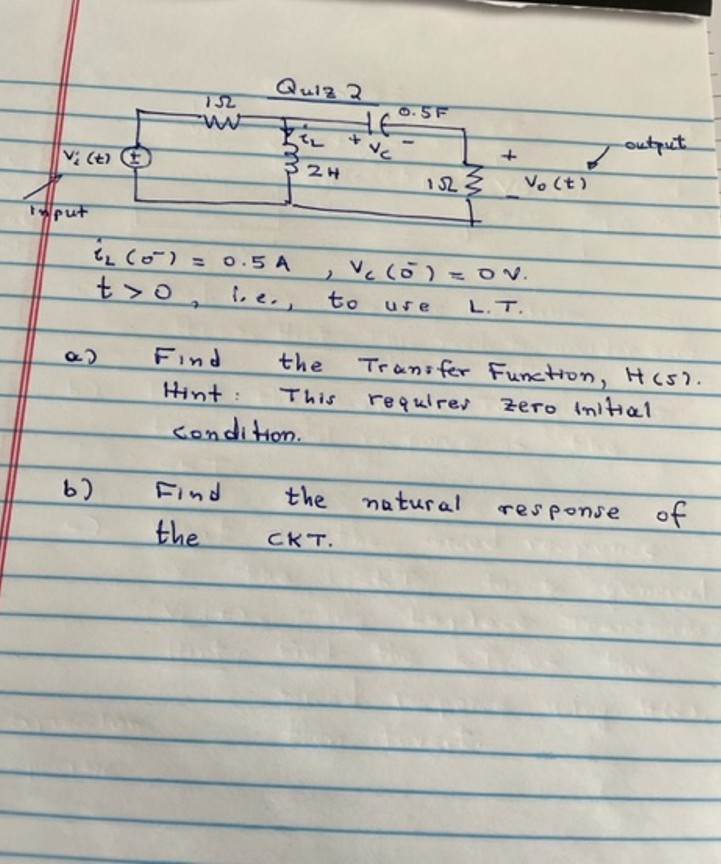 Quiz 2
1Ω 0.5F
iL + Vc -
Vi (t) ± 2H 1Ω + Vo (t) - output
input
iL (0-) = 0.5 A , Vc (0-) = 0 V.
t > 0 , i.e., to use L.T.
a) Find the Transfer Function, H(s).
Hint: This requires zero initial
condition.
b) Find the natural response of
the CKT.